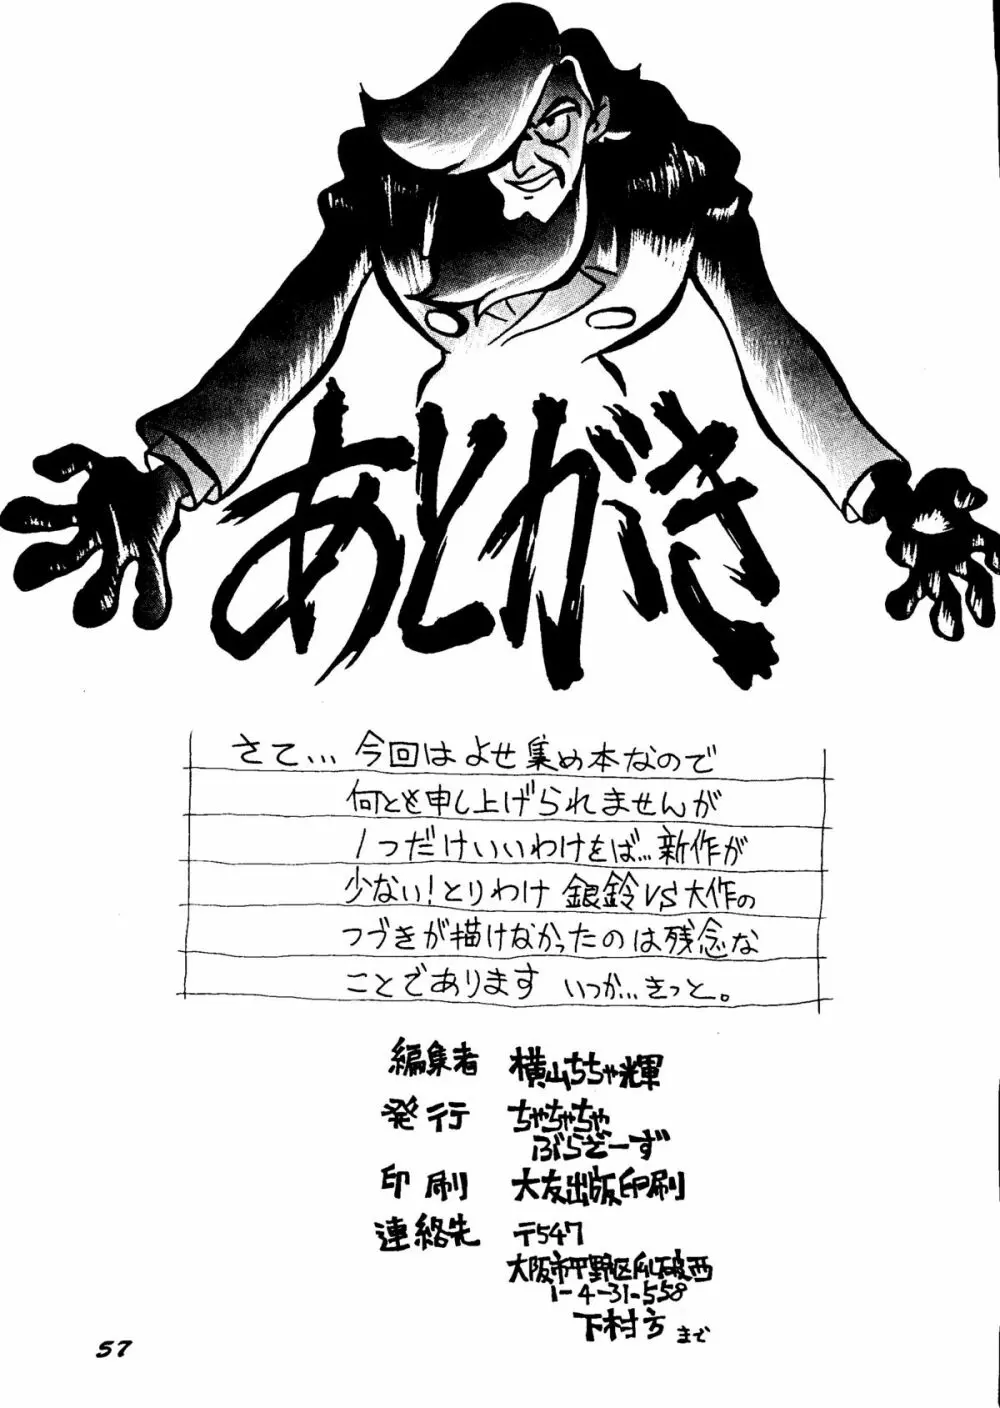 あとがき
さて… 今回は よせ集め本なので
何とも申し上げられませんが
1つだけいいわけをば…新作が
少ない!とりわけ 銀鈴VS大作の
つづきが描けなかったのは残念な
ことであります いつか…きっと。
編集者 横山ちちゃ輝
発行 ちゃちゃちゃ
ぶらざーず
印刷 大友出版印刷
連絡先 〒547
大阪市平野区瓜破西
1-4-31-558
下村方 まで
57